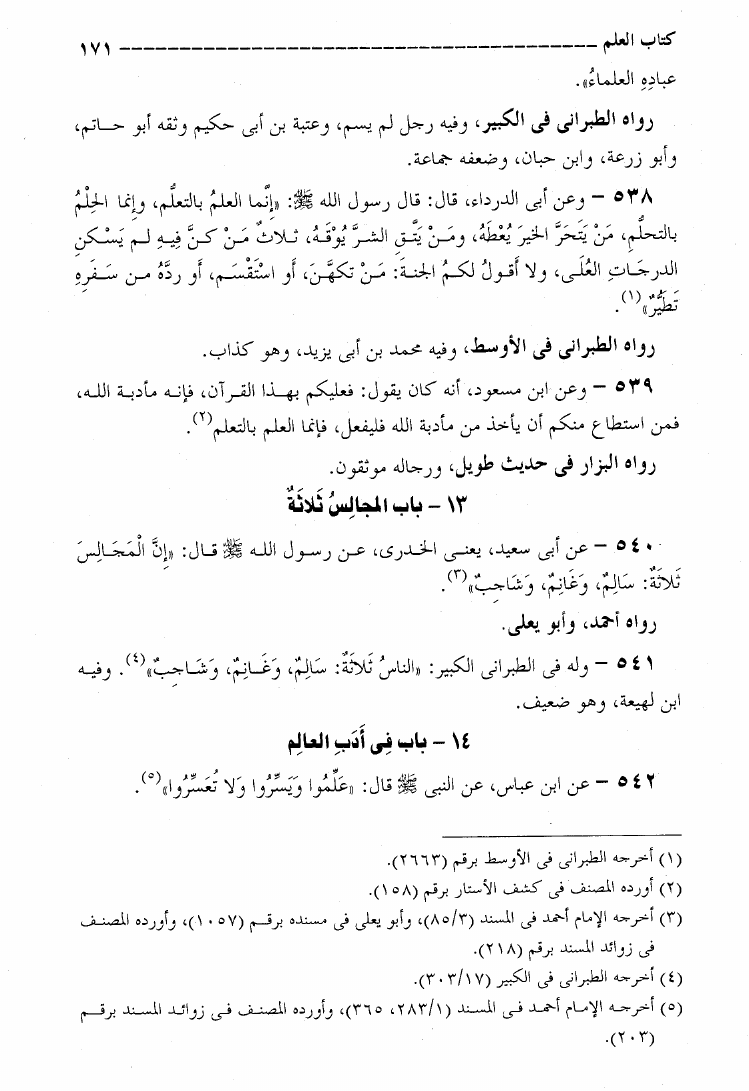 كتاب العلم ـــــــــــــــــــــــــــــــــــــــــــــــــ ١٧١
عبادِهِ العلماءُ».
رواه الطبرانى فى الكبير، وفيه رجل لم يسم، وعتبة بن أبى حكيم وثقه أبو حاتم،
وأبو زرعة، وابن حبان، وضعفه جماعة.
٥٣٨ – وعن أبى الدرداء، قال: قال رسول الله ﷺ: «إنَّما العلمُ بالتعلُّم، وإنما الحِلْمُ
بالتحلُّمِ، مَنْ يَتَحَرَّ الخيرَ يُعْطَهُ، ومَنْ يَتَّقِ الشرَّ يُوْقَهُ، ثلاثٌ مَنْ كنَّ فِيهِ لم يَسْكنِ
الدرجَاتِ العُلَى، ولا أقولُ لكمُ الجنةَ: مَنْ تكهَّنَ، أو اسْتَقْسَم، أو ردَّهُ من سَفَرِهِ
تَطَيُّرٌ»(١).
رواه الطبرانى فى الأوسط، وفيه محمد بن أبى يزيد، وهو كذاب.
٥٣٩ – وعن ابن مسعود، أنه كان يقول: فعليكم بهذا القرآن، فإنه مأدبة الله،
فمن استطاع منكم أن يأخذ من مأدبة الله فليفعل، فإنما العلم بالتعلم(٢).
رواه البزار فى حديث طويل، ورجاله موثقون.
١٣ – باب المجالِسُ ثَلاثَةٌ
٥٤٠ – عن أبى سعيد، يعنى الخدرى، عن رسول الله ﷺ قال: «إنَّ الْمَجَالِسَ
ثَلاثَةٌ: سَالِمٌ، وَغَانِمٌ، وَشَاجِبٌ»(٣).
رواه أحمد، وأبو يعلى.
٥٤١ – وله فى الطبرانى الكبير: «الناسُ ثَلاثَةٌ: سَالِمٌ، وَغَانِمٌ، وَشَاجِبٌ»(٤). وفيه
ابن لهيعة، وهو ضعيف.
١٤ – باب فِى أَدَبِ العالِمِ
٥٤٢ – عن ابن عباس، عن النبى ﷺ قال: «عَلِّمُوا وَيَسِّرُوا وَلا تُعَسِّرُوا»(٥).
(١) أخرجه الطبرانى فى الأوسط برقم (٢٦٦٣).
(٢) أورده المصنف فى كشف الأستار برقم (١٥٨).
(٣) أخرجه الإمام أحمد فى المسند (٨٥/٣)، وأبو يعلى فى مسنده برقم (١٠٥٧)، وأورده المصنف
فى زوائد المسند برقم (٢١٨).
(٤) أخرجه الطبرانى فى الكبير (٣٠٣/١٧).
(٥) أخرجه الإمام أحمد فى المسند (٢٨٣/١، ٣٦٥)، وأورده المصنف فى زوائد المسند برقم
(٢٠٣).